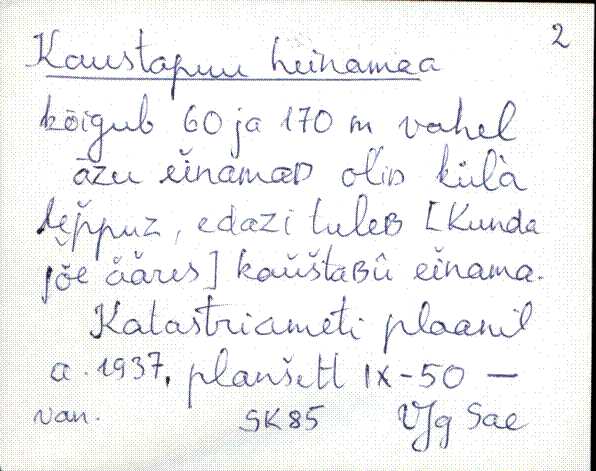 2
Kaustapuu heinamaa
kõigub 60 ja 170 m vahel
āzu ei̮namaᴅ olīᴅ külà
lep̆puz, edazi tuleʙ [Kunda
jõe ääres] kaŭštaʙû ei̮nama.
Katastriameti plaanil
a. 1937, planšett IX-50 —
van. SK85 VJg Sae